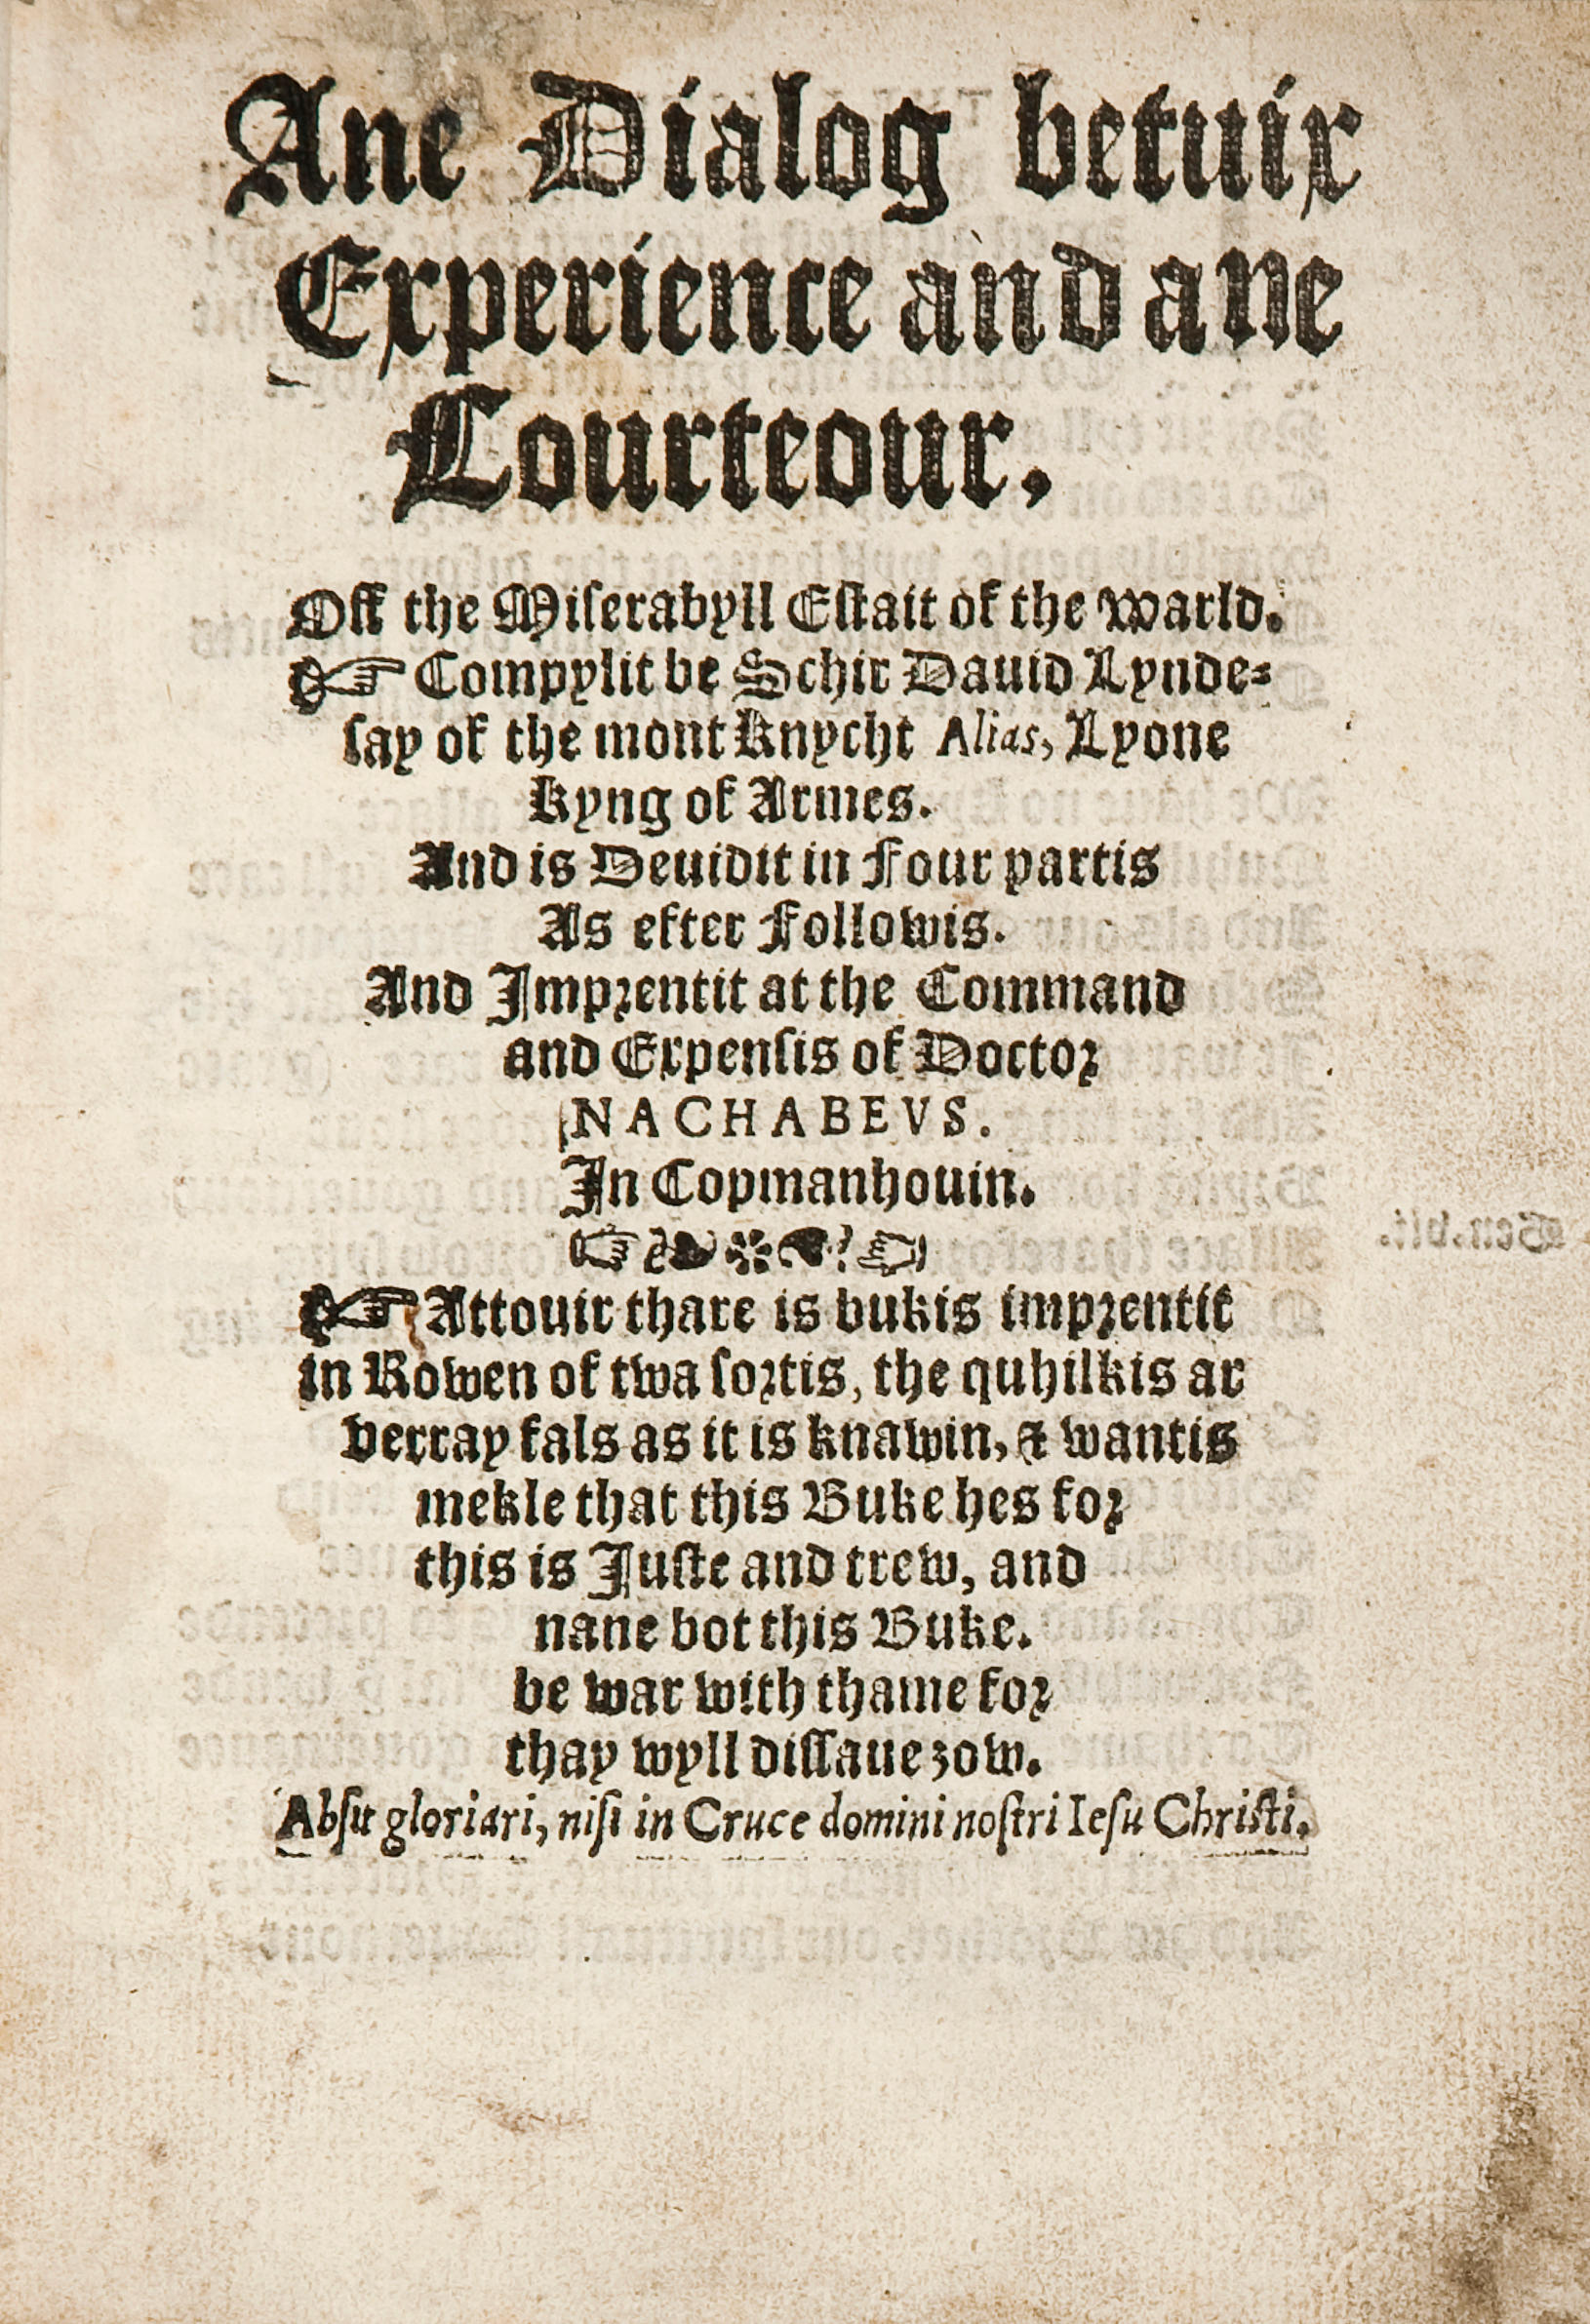 Ane Dialog betuix
Experience and ane
Courteour,
Off the Miſerabyll Eſtait of the warld.
☞ Compylit be Schir Dauid Lynde⸗
ſay of the mont Knycht Alias, Lyone
Kyng of Armes.
And is Deuidit in Four partis
As efter Followis.
And Imprentit at the Command
and Expenſis of Doctor
NACHABEVS.
In Copmanhouin.
☞ Attouir thare is bukis imprentit
in Rowen of twa ſortis, the quhilkis ar
verray fals as it is knawin, & wantis
mekle that this Buke hes for
this is Juſte and trew, and
nane bot this Buke.
be war with thame for
thay wyll diſſaue ȝow.
Abſit gloriari, niſi in Cruce domini noſtri Ieſu Chriſti.